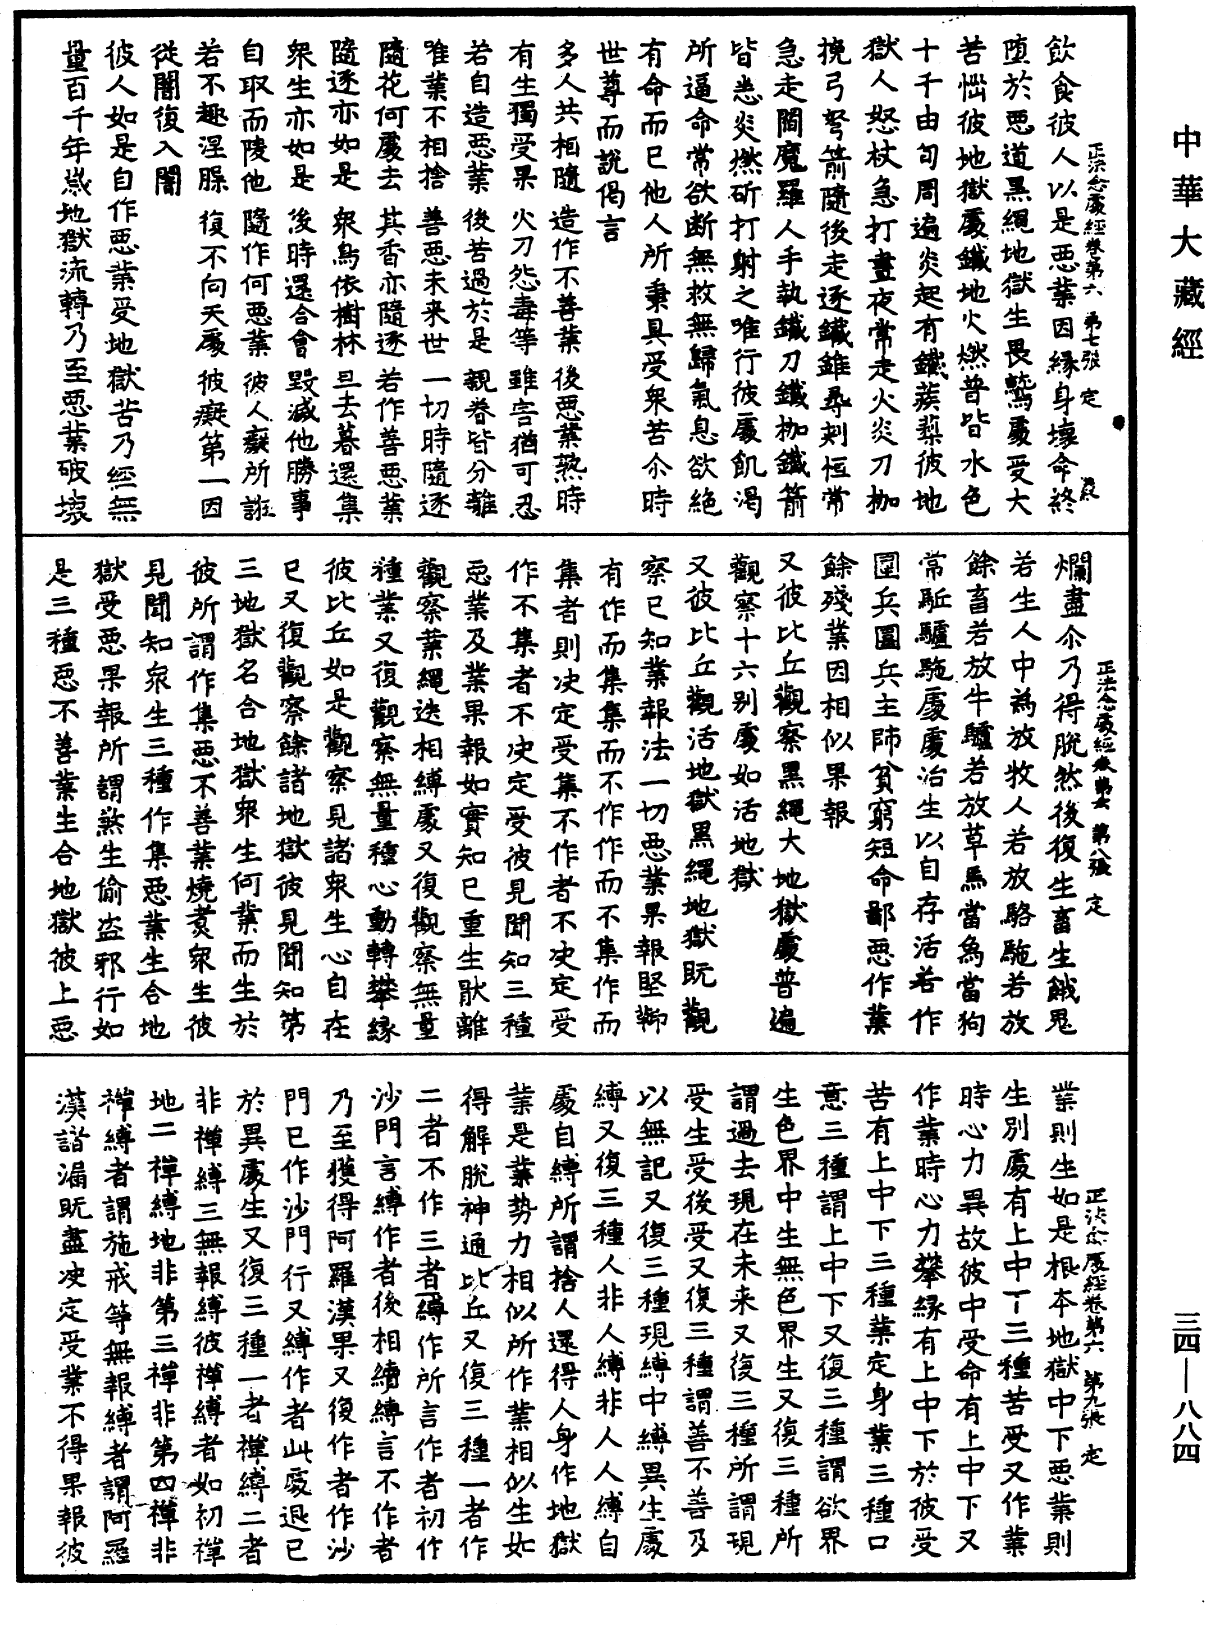 中華大藏經
正法念處經卷第六 第七張 定
飲食彼人以是惡業因緣身壞命終
墮於惡道黑繩地獄生畏鷲處受大
苦惱彼地獄處鐵地火燃普皆水色
十千由旬周遍炎起有鐵蒺蔾彼地
獄人怒杖急打晝夜常走火炎刀枷
挽弓弩箭隨後走逐鐵錐尋刾恒常
急走閻魔羅人手執鐵刀鐵枷鐵箭
皆悉炎燃斫打射之唯行彼處飢渴
所逼命常欲断無救無歸氣息欲絶
有命而已他人所秉具受衆苦尒時
世尊而說偈言
多人共相隨 造作不善業 後惡業熟時
有生獨受果 火刀怨毒等 雖害猶可忍
若自造惡業 後苦過於是 親眷皆分離
唯業不相捨 善惡未来世 一切時隨逐
隨花何處去 其香亦隨逐 若作善惡業
隨逐亦如是 衆鳥依樹林 旦去暮還集
衆生亦如是 後時還合會 毀滅他勝事
自取而陵他 隨作何惡業 彼人癡所誑
若不趣涅脲 復不向天處 彼癡第一因
從闇復入闇
彼人如是自作惡業受地獄苦乃經無
量百千年歲地獄流轉乃至惡業破壞
正法念處經卷第六 第八張 定
爛盡尒乃得脫然後復生畜生餓鬼
若生人中為放牧人若放駱駞若放
餘畜若放牛驢若放草馬當象當狗
常駈驢駞處處治生以自存活若作
圍兵圓兵主師貧窮短命鄙惡作業
餘殘業因相似果報
又彼比丘觀察黑繩大地獄處普遍
觀察十六別處如活地獄
又彼比丘觀活地獄黑繩地獄既觀
察已知業報法一切惡業果報堅鞕
有作而集集而不作作而不集作而
集者則决定受集不作者不决定受
作不集者不决定受彼見聞知三種
惡業及業果報如實知已重生猒離
觀察葉繩迭相縛處又復觀察無量
種業又復觀察無量種心動轉攀緣
彼比丘如是觀察見諸衆生心自在
已又復觀察餘諸地獄彼見聞知第
三地獄名合地獄衆生何業而生於
彼所謂作集惡不善業燒煑衆生彼
見聞知衆生三種作集惡業生合地
獄受惡果報所謂煞生偷盗邪行如
是三種惡不善業生合地獄彼上惡
正法念處經卷第六 第九張 定
業則生如是根本地獄中下惡業則
生別處有上中丅三種苦受又作業
時心力異故彼中受命有上中下又
作業時心力攀緣有上中下於彼受
苦有上中下三種業定身業三種口
意三種謂上中下又復三種謂欲界
生色界中生無色界生又復三種所
謂過去現在未来又復三種所謂現
受生受後受又復三種謂善不善及
以無記又復三種現縛中縛異生處
縛又復三種人非人縛非人人縛自
處自縛所謂捨人還得人身作地獄
業是業势力相似所作業相似生如
得解脫神通比丘又復三種一者作
二者不作三者縛作所言作者初作
沙門言縛作者後相續縛言不作者
乃至獲得阿羅漢果又復作者作沙
門已作沙門行又縛作者此處退已
於異處生又復三種一者禪縛二者
非禪縛三無報縛彼禪縛者如初禪
地二禪縛地非第三禪非第四禪非
禪縛者謂施戒等無報縛者謂阿羅
漢諸漏既盡决定受業不得果報彼
三四—八八四